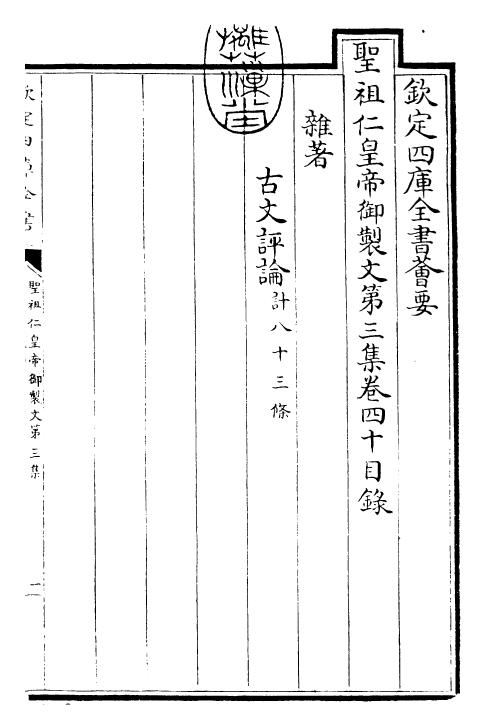 欽定四庫全書薈要
聖祖仁皇帝御製文第三集卷四十目錄
雜著
古文評論計八十三條
欽定四庫全書
聖祖仁皇帝御製文第三集